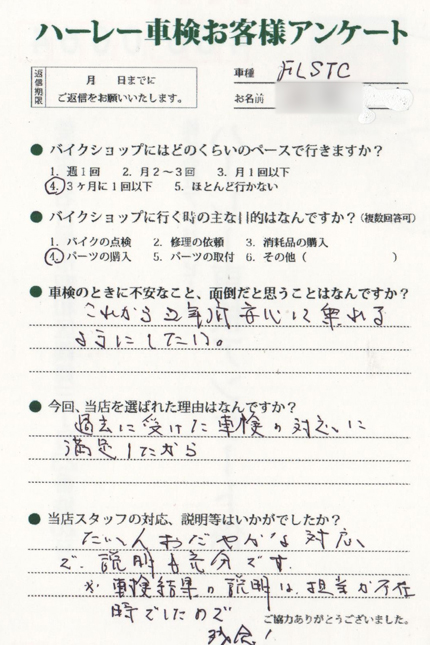 ハーレー車検お客様アンケート
返信期限
月 日までに
ご返信をお願いいたします。
車種 FLSTC
お名前
● バイクショップにはどのくらいのペースで行きますか？
1. 週1回 2. 月2～3回 3. 月1回以下
4. 3ヶ月に1回以下 5. ほとんど行かない
● バイクショップに行く時の主な目的はなんですか？（複数回答可）
1. バイクの点検 2. 修理の依頼 3. 消耗品の購入
4. パーツの購入 5. パーツの取付 6. その他（ ）
● 車検のときに不安なこと、面倒だと思うことはなんですか？
これから 年間安心して乗れる
ようにしたい。
● 今回、当店を選ばれた理由はなんですか？
過去に受けた車検の対応に
満足したから
● 当店スタッフの対応、説明等はいかがでしたか？
たいへんおだやかな対応
で、説明も充分です
※車検結果の説明は、担当が不在
時でしたので
ご協力ありがとうございました。
残念！